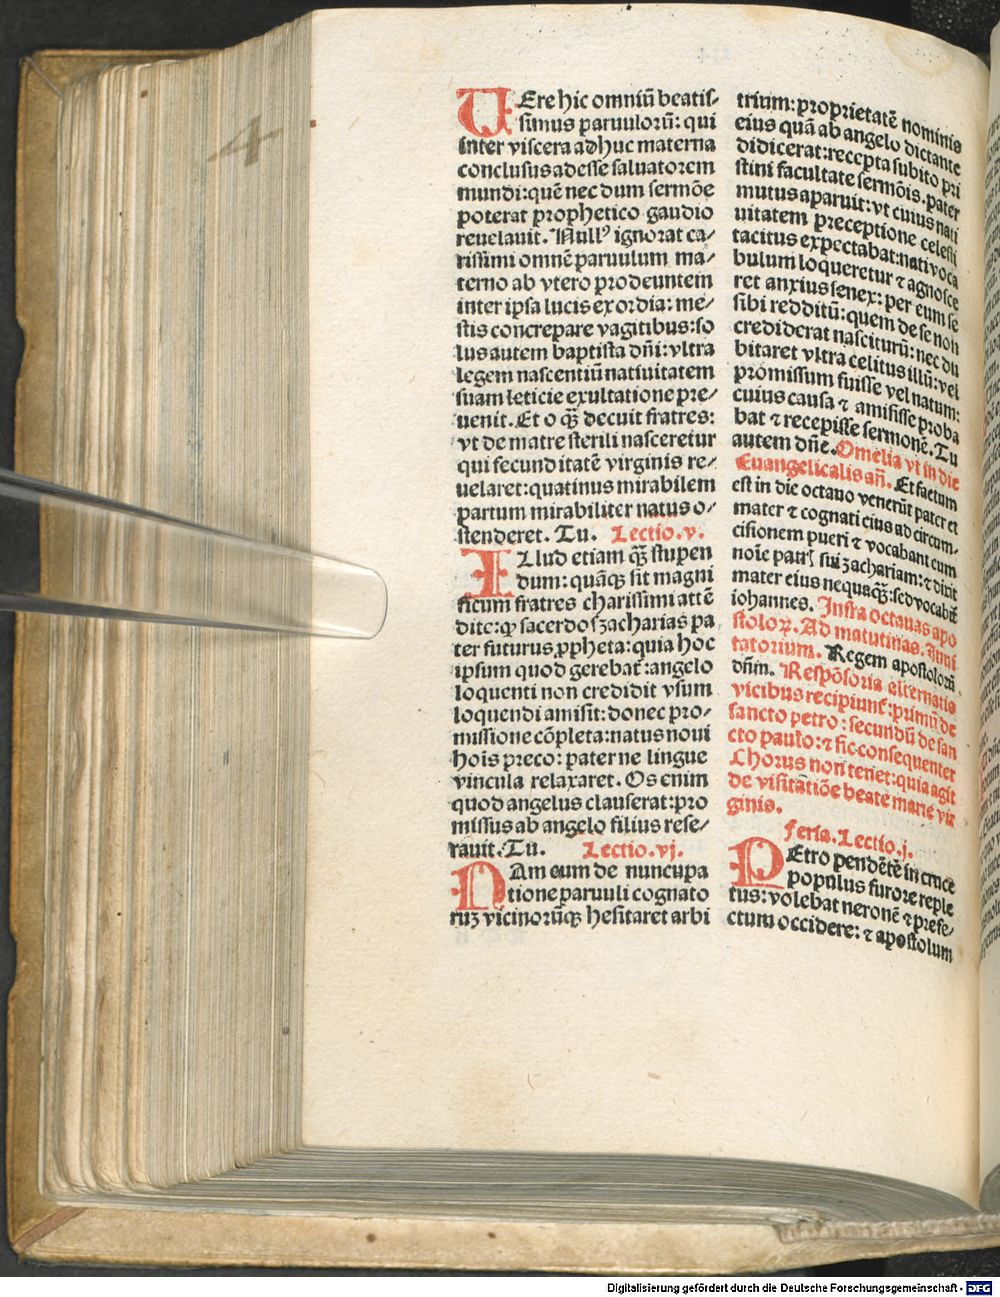 4
UEre hic omniū beatiſ⸗
ſimus paruulorū: qui
inter viſcera adhuc materna
concluſus adeſſe ſaluatorem
mundi: quē nec dum ſermōe
poterat prophetico gaudio
reuelauit. Nullꝰ ignorat ca⸗
riſſimi omnē paruulum ma⸗
terno ab vtero prodeuntem
inter ipſa lucis exordia: me⸗
ſtis concrepare vagitibus: ſo
lus autem baptiſta dn̄i: vltra
legem naſcentiū natiuitatem
ſuam leticie exultatione pre⸗
uenit. Et o q̄ꝫ decuit fratres:
vt de matre ſterili naſceretur
qui fecunditatē virginis re⸗
uelaret: quatinus mirabilem
partum mirabiliter natus o⸗
ſtenderet. Tu. Lectio.v.
ILlud etiam q̄ꝫ ſtupen
dum: quāqꝫ ſit magni
ficum fratres chariſſimi attē
dite: ꝙ ſacerdos zacharias pa
ter futurus ꝓpheta: quia hoc
ipſum quod gerebat᷑: angelo
loquenti non credidit vſum
loquendi amiſit: donec pro⸗
miſſione cōpleta: natus noui
hoīs preco: paterne lingue
vincula relaxaret. Os enim
quod angelus clauſerat: pro
miſſus ab angelo filius reſe⸗
rauit. Tu. Lectio.vj.
NAm cum de nuncupa
tione paruuli cognato
ruꝫ vicinorūqꝫ heſitaret arbi
trium: proprietatē nominis
eius quā ab angelo dictante
didicerat: recepta ſubito pri
ſtini facultate ſermōis. pater
mutus aparuit: vt cuius nati
uitatem preceptione celeſti
tacitus expectabat: nati voca
bulum loqueretur ⁊ agnoſce
ret anxius ſenex: per eum ſe
ſibi redditū: quem de ſe non
crediderat naſciturū: nec du
bitaret vltra celitus illū: vel
promiſſum fuiſſe vel natum:
cuius cauſa ⁊ amiſiſſe proba
bat ⁊ recepiſſe ſermonē. Tu
autem dn̄e. Omelia vt in die
Euangelicalis an̄. Et factum
eſt in die octauo venerūt pater et
mater ⁊ cognati eius ad circum⸗
ciſionem pueri ⁊ vocabant eum
noīe patrꝭ ſui zachariam: ⁊ dixit
mater eius nequaq̄ꝫ: ſed vocabit᷑
iohannes. Infra octauas apo
ſtoloꝝ. Ad matutinas. Inui
tatorium. Regem apoſtolorū
dn̄m. Reſpōſoria alternatis
vicibus recipiunt᷑: primū de
ſancto petro: ſecundū de ſan
cto paulo: ⁊ ſic conſequenter
Chorus non tenet᷑: quia agit᷑
de viſitatiōe beate marie vir
ginis.
feria. Lectio.j.
PEtro pendētē in cruce
populus furore reple
tus: volebat neronē ⁊ prefe⸗
ctum occidere: ⁊ apoſtolum
Digitalisierung gefördert durch die Deutsche Forschungsgemeinschaft - DFG